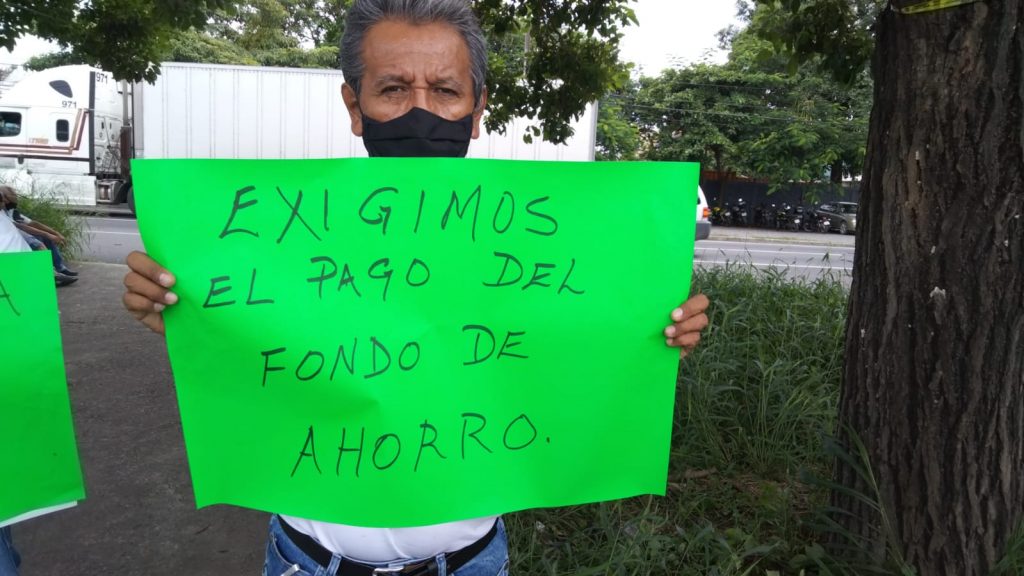 971
971
EXIGIMOS
EL PAGO DEL
FONDO DE
AHORRO.
A